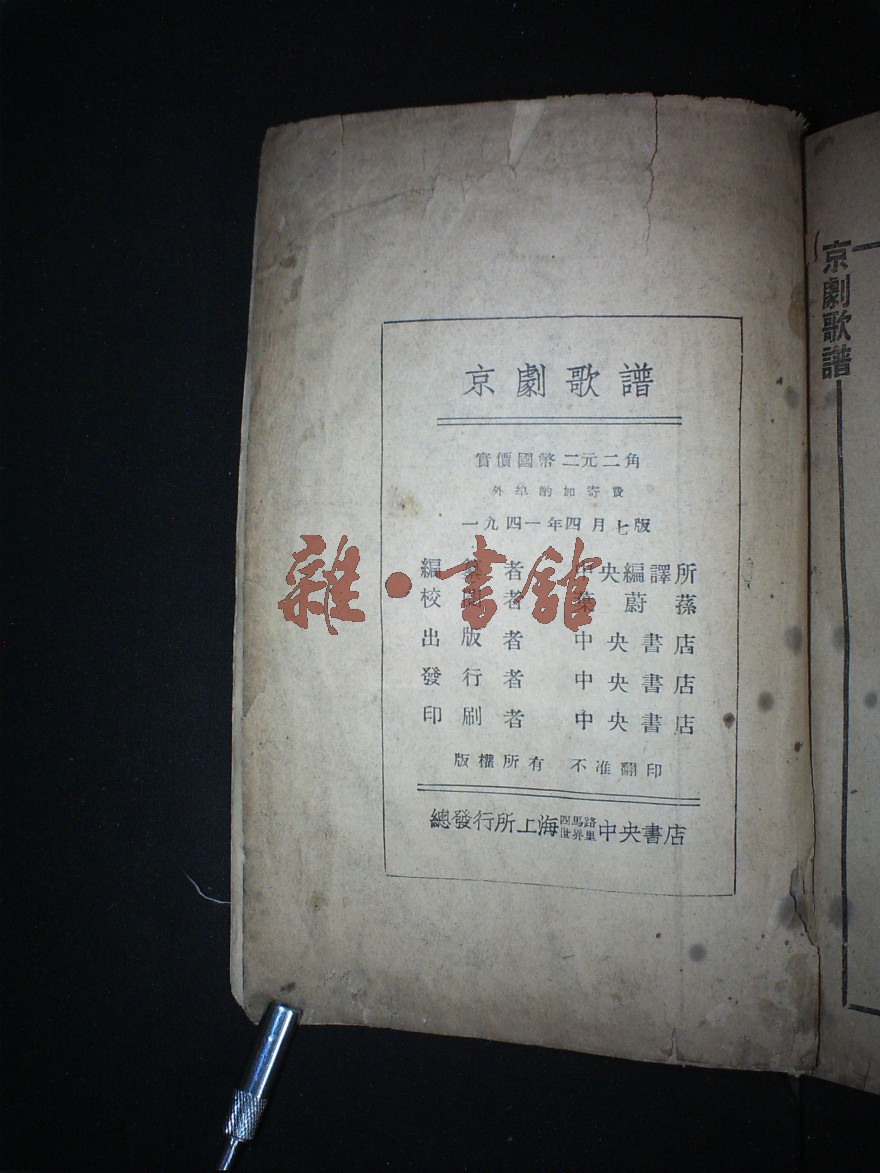 京劇歌譜
實價國幣二元二角
外埠酌加寄費
一九四一年四月七版
編 者 中央編譯所
校閱者 葉蔚蓀
出版者 中央書店
發行者 中央書店
印刷者 中央書店
版權所有 不准翻印
總發行所上海四馬路世界里中央書店
京劇歌譜
雜·書館